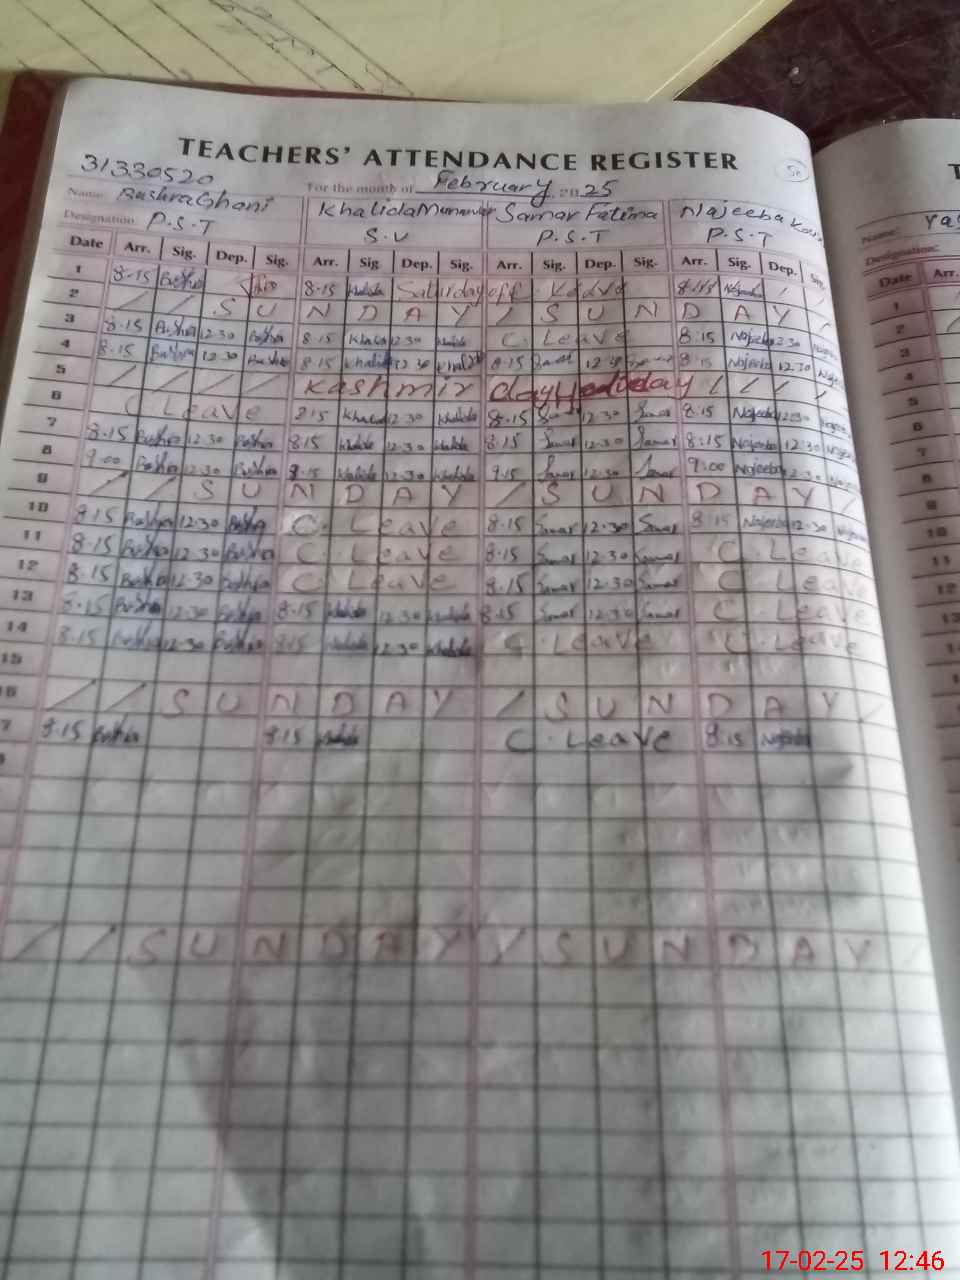 TEACHERS' ATTENDANCE REGISTER
31330520
For the month of February 2025
Name: Bushra Ghani Khalida Munawar Samar Fatima Najeeba
Designation: P.S.T S.V P.S.T P.S.T
Date Arr. Sig. Dep. Sig. Arr. Sig. Dep. Sig. Arr. Sig. Dep. Sig. Arr. Sig. Dep. Sig.
1 8.15 Bushra 8.15 Khalida Saturday off 8.15 Najeeba
2 / / S U N D A Y / S U N D A Y /
3 8.15 Bushra 12.30 Bushra 8.15 Khalida 12.30 Khalida C. Leave 8:15 Najeeba 12.30 Najeeba
4 8.15 Bushra 12.30 Bushra 8.15 Khalida 12.30 Khalida 8.15 Samar 12.30 Samar 8.15 Najeeba 12.30 Najeeba
5 / / / / Kashmir day Holiday / / / /
6 C Leave 8.15 Khalida 12.30 Khalida 8.15 Samar 12.30 Samar 8.15 Najeeba 12.30 Najeeba
7 8.15 Bushra 12.30 Bushra 8.15 Khalida 12.30 Khalida 8.15 Samar 12.30 Samar 8:15 Najeeba 12.30 Najeeba
8 9.00 Bushra 12.30 Bushra 9.15 Khalida 12.30 Khalida 9.15 Samar 12.30 Samar 9:00 Najeeba 12.30 Najeeba
9 / / S U N D A Y / S U N D A Y /
10 8.15 Bushra 12.30 Bushra C. Leave 8.15 Samar 12.30 Samar 8:15 Najeeba 12.30 Najeeba
11 8.15 Bushra 12.30 Bushra C. Leave 8.15 Samar 12.30 Samar C. Leave
12 8.15 Bushra 12.30 Bushra C. Leave 8.15 Samar 12.30 Samar C. Leave
13 8.15 Bushra 12.30 Bushra 8.15 Khalida 12.30 Khalida 8.15 Samar 12.30 Samar C. Leave
14 8.15 Bushra 12.30 Bushra 8.15 Khalida 12.30 Khalida C. Leave C. Leave
15
16 / / S U N D A Y / S U N D A Y /
7 8.15 Bushra 8.15 Khalida C. Leave 8.15 Najeeba
/ / S U N D A Y / S U N D A Y /
T
Name: Yas
Designation:
Date Arr.
1
2
3
4
5
6
7
8
9
10
11
12
13
17-02-25 12:46